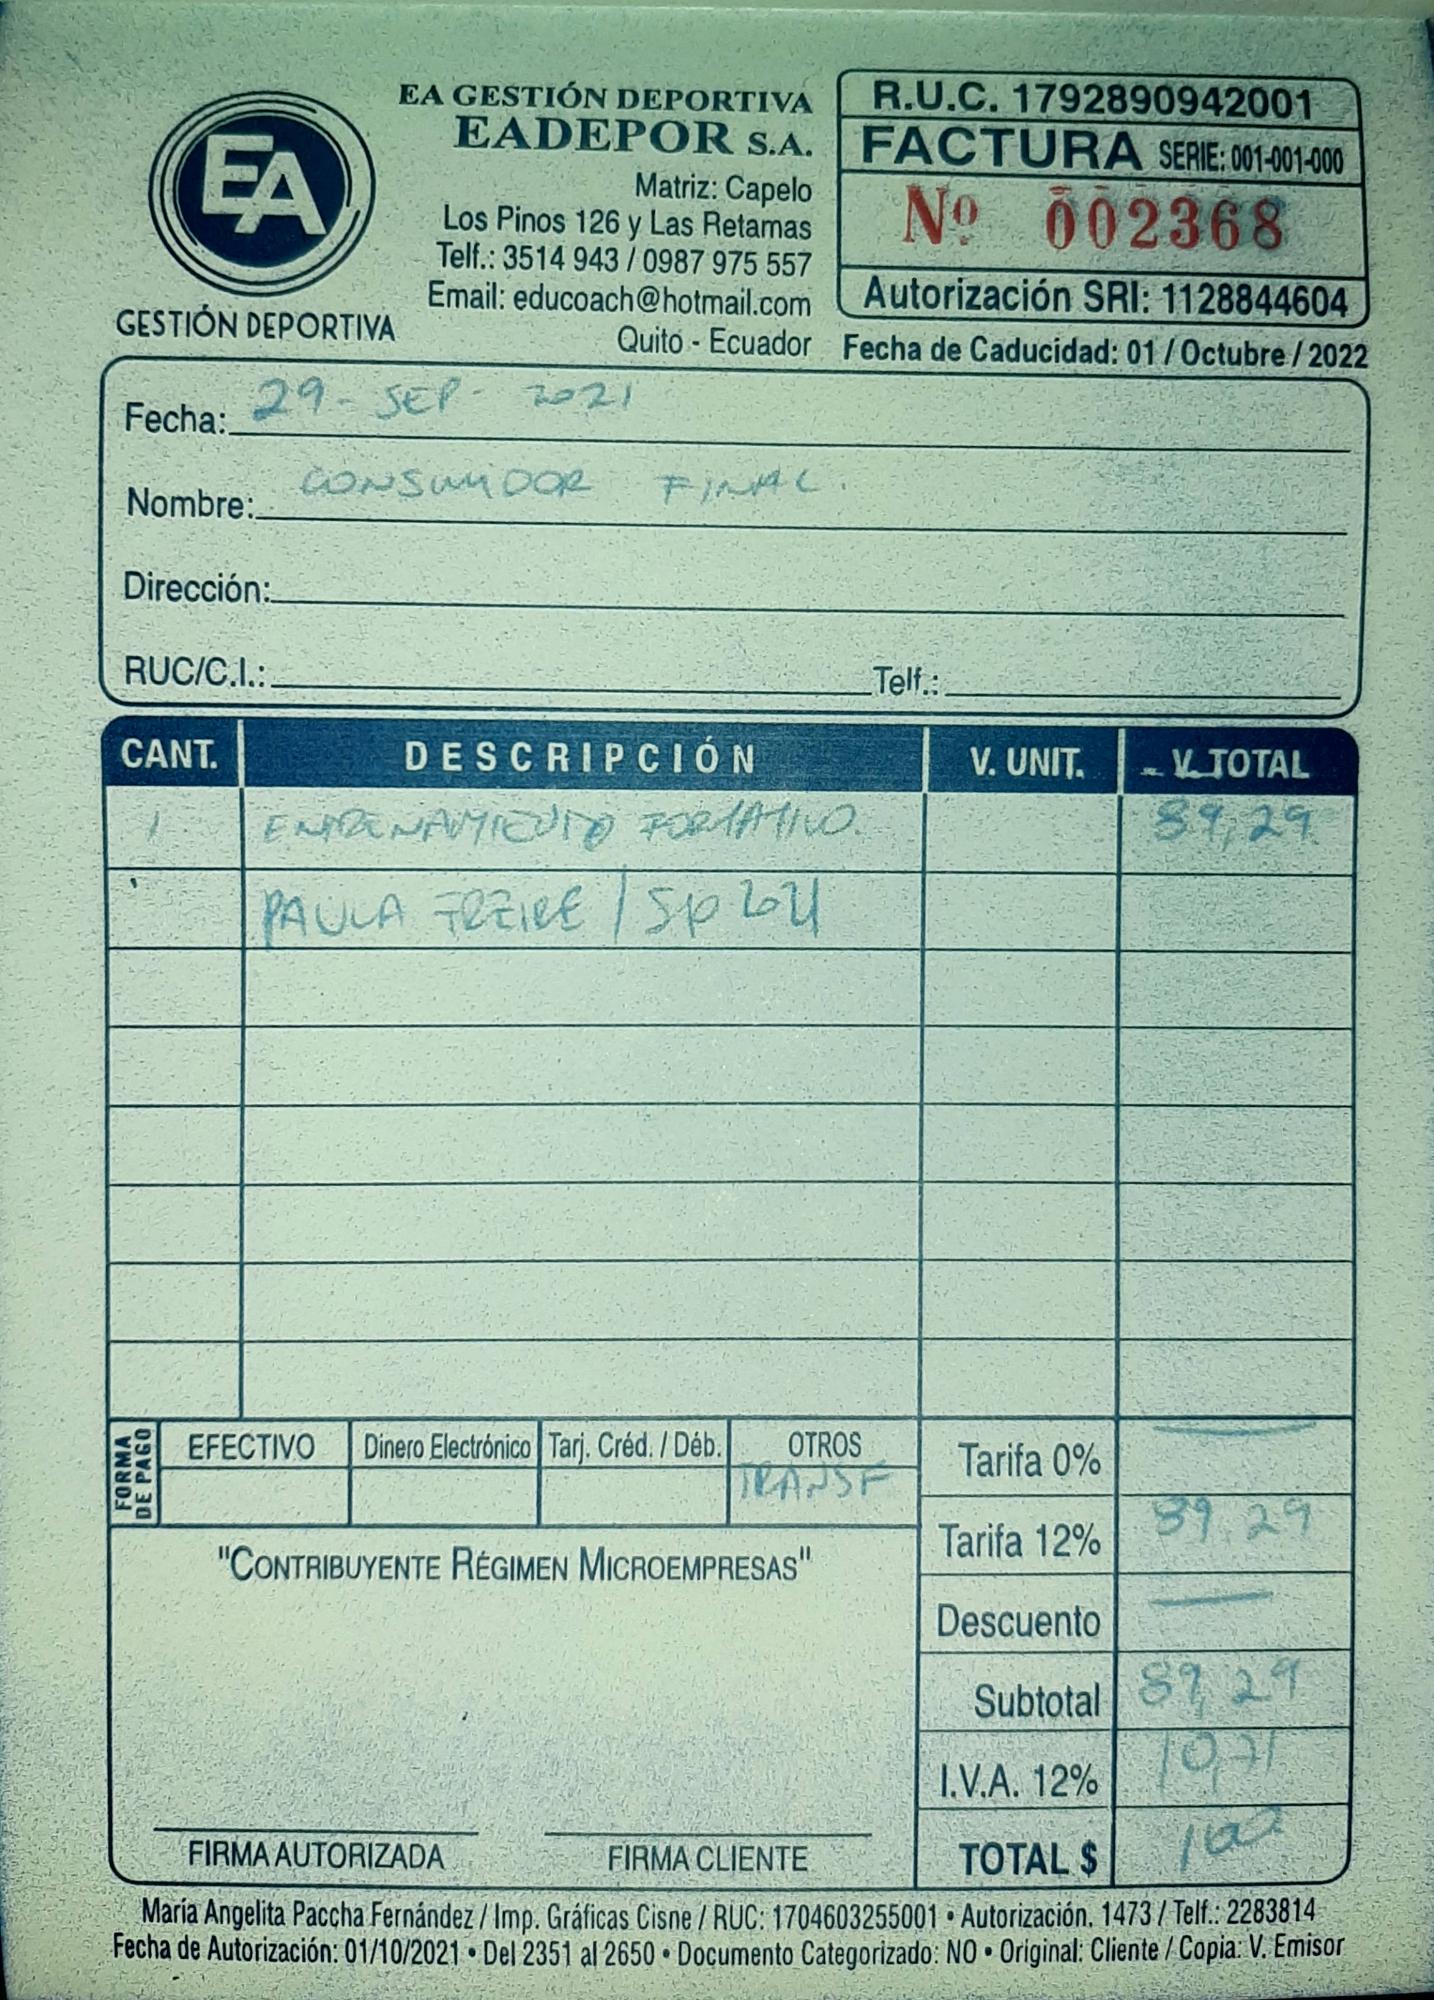 EA
GESTIÓN DEPORTIVA
EA GESTIÓN DEPORTIVA
EADEPOR S.A.
Matriz: Capelo
Los Pinos 126 y Las Retamas
Telf.: 3514 943 / 0987 975 557
Email: educoach@hotmail.com
Quito - Ecuador
R.U.C. 1792890942001
FACTURA SERIE: 001-001-000
Nº 002368
Autorización SRI: 1128844604
Fecha de Caducidad: 01 / Octubre / 2022
Fecha: 29 - SEP - 2021
Nombre: CONSUMIDOR FINAL.
Dirección:
RUC/C.I.: Telf.:
CANT. DESCRIPCIÓN V. UNIT. V. TOTAL
1 ENTRENAMIENTO 89,29
PAULA FREIRE /
FORMA DE PAGO
EFECTIVO Dinero Electrónico Tarj. Créd. / Déb. OTROS
TRANSF
Tarifa 0% —
Tarifa 12% 89,29
Descuento —
Subtotal 89,29
I.V.A. 12% 10,71
TOTAL $ 100
"CONTRIBUYENTE RÉGIMEN MICROEMPRESAS"
FIRMA AUTORIZADA FIRMA CLIENTE
María Angelita Paccha Fernández / Imp. Gráficas Cisne / RUC: 1704603255001 • Autorización. 1473 / Telf.: 2283814
Fecha de Autorización: 01/10/2021 • Del 2351 al 2650 • Documento Categorizado: NO • Original: Cliente / Copia: V. Emisor